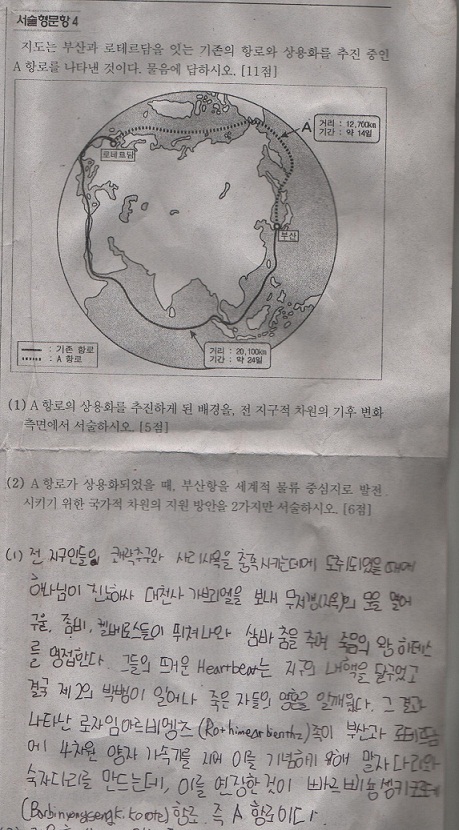 서술형문항 4
지도는 부산과 로테르담을 잇는 기존의 항로와 상용화를 추진 중인
A 항로를 나타낸 것이다. 물음에 답하시오. [11점]
A
거리 : 12,700km
기간 : 약 14일
로테르담
부산
: 기존 항로
: A 항로
거리 : 20,100km
기간 : 약 24일
(1) A 항로의 상용화를 추진하게 된 배경을, 전 지구적 차원의 기후 변화
측면에서 서술하시오. [5점]
(2) A 항로가 상용화되었을 때, 부산항을 세계적 물류 중심지로 발전
시키기 위한 국가적 차원의 지원 방안을 2가지만 서술하시오. [6점]
(1) 전 지구인들이 쾌락추구와 사리사욕을 충족시키는데에 도취되있을 때에
하나님이 진노하사 대천사 가브리엘을 보내 무저갱의 문을 열어
구울, 좀비, 켈베로스들이 뛰쳐나와 삼바 춤을 추며 죽음의 왕 하데스
를 영접한다. 그들의 뜨거운 Heartbeat는 지구의 내핵을 달구었고
결국 제 2의 빅뱅이 일어나 죽은 자들의 영혼을 일깨웠다. 그 결과
나타난 로자임아르비엥즈 (Rothimearbenthz)족이 부산과 로테르담
에 4차원 양자 가속기를 지어 이를 기념하기 위해 말자다리와
숙자다리를 만드는데, 이를 연장한 것이
항로, 즉 A 항로이다.